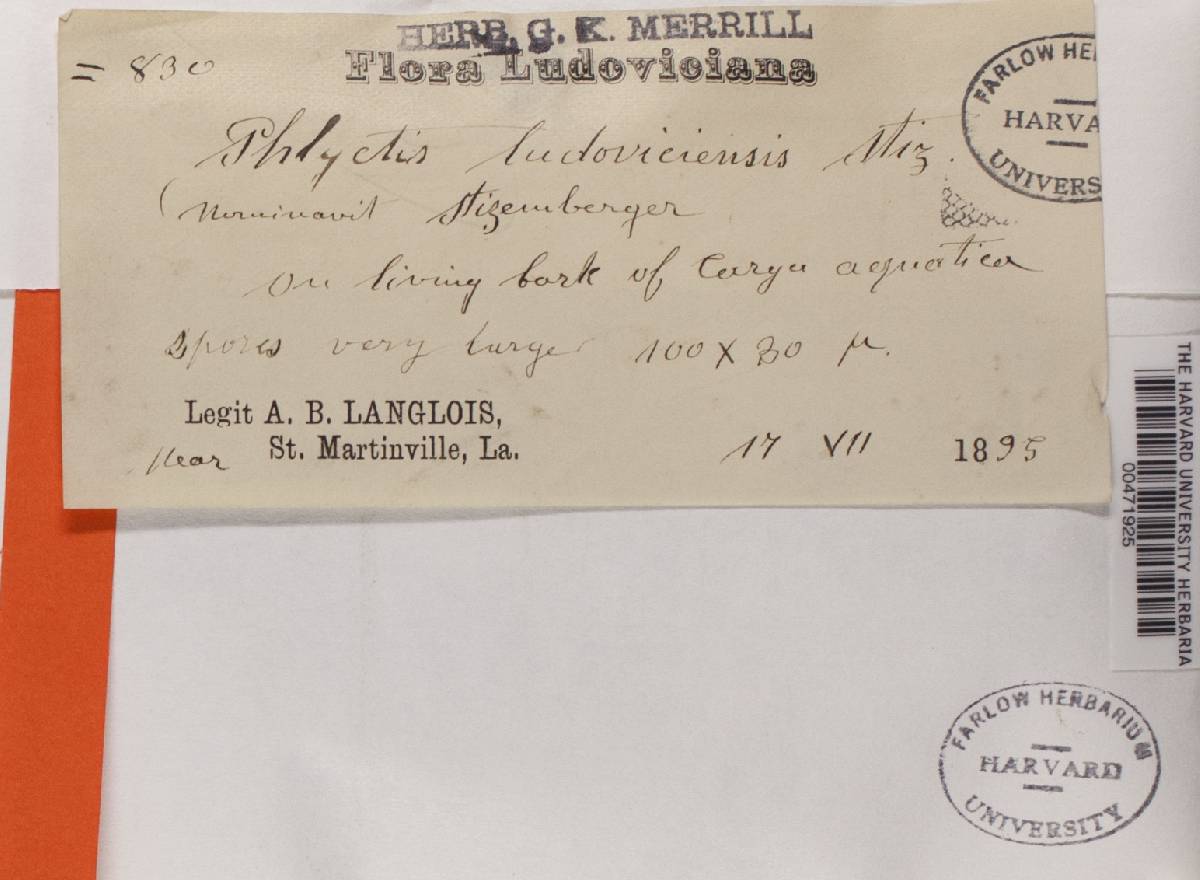 HERB. G. K. MERRILL
= 830
Flora Ludoviciana
Phlyctis ludoviciensis Stiz.
(Nominavit Stizemberger
on living bark of Carya aquatica
spores very large 100 X 30 µ.
Legit A. B. LANGLOIS,
near St. Martinville, La.
17 VII 1895
FARLOW HE
HARVA
UNIVERS
THE HARVARD UNIVERSITY HERBARIA
00471925
FARLOW HERBARIUM
HARVARD
UNIVERSITY